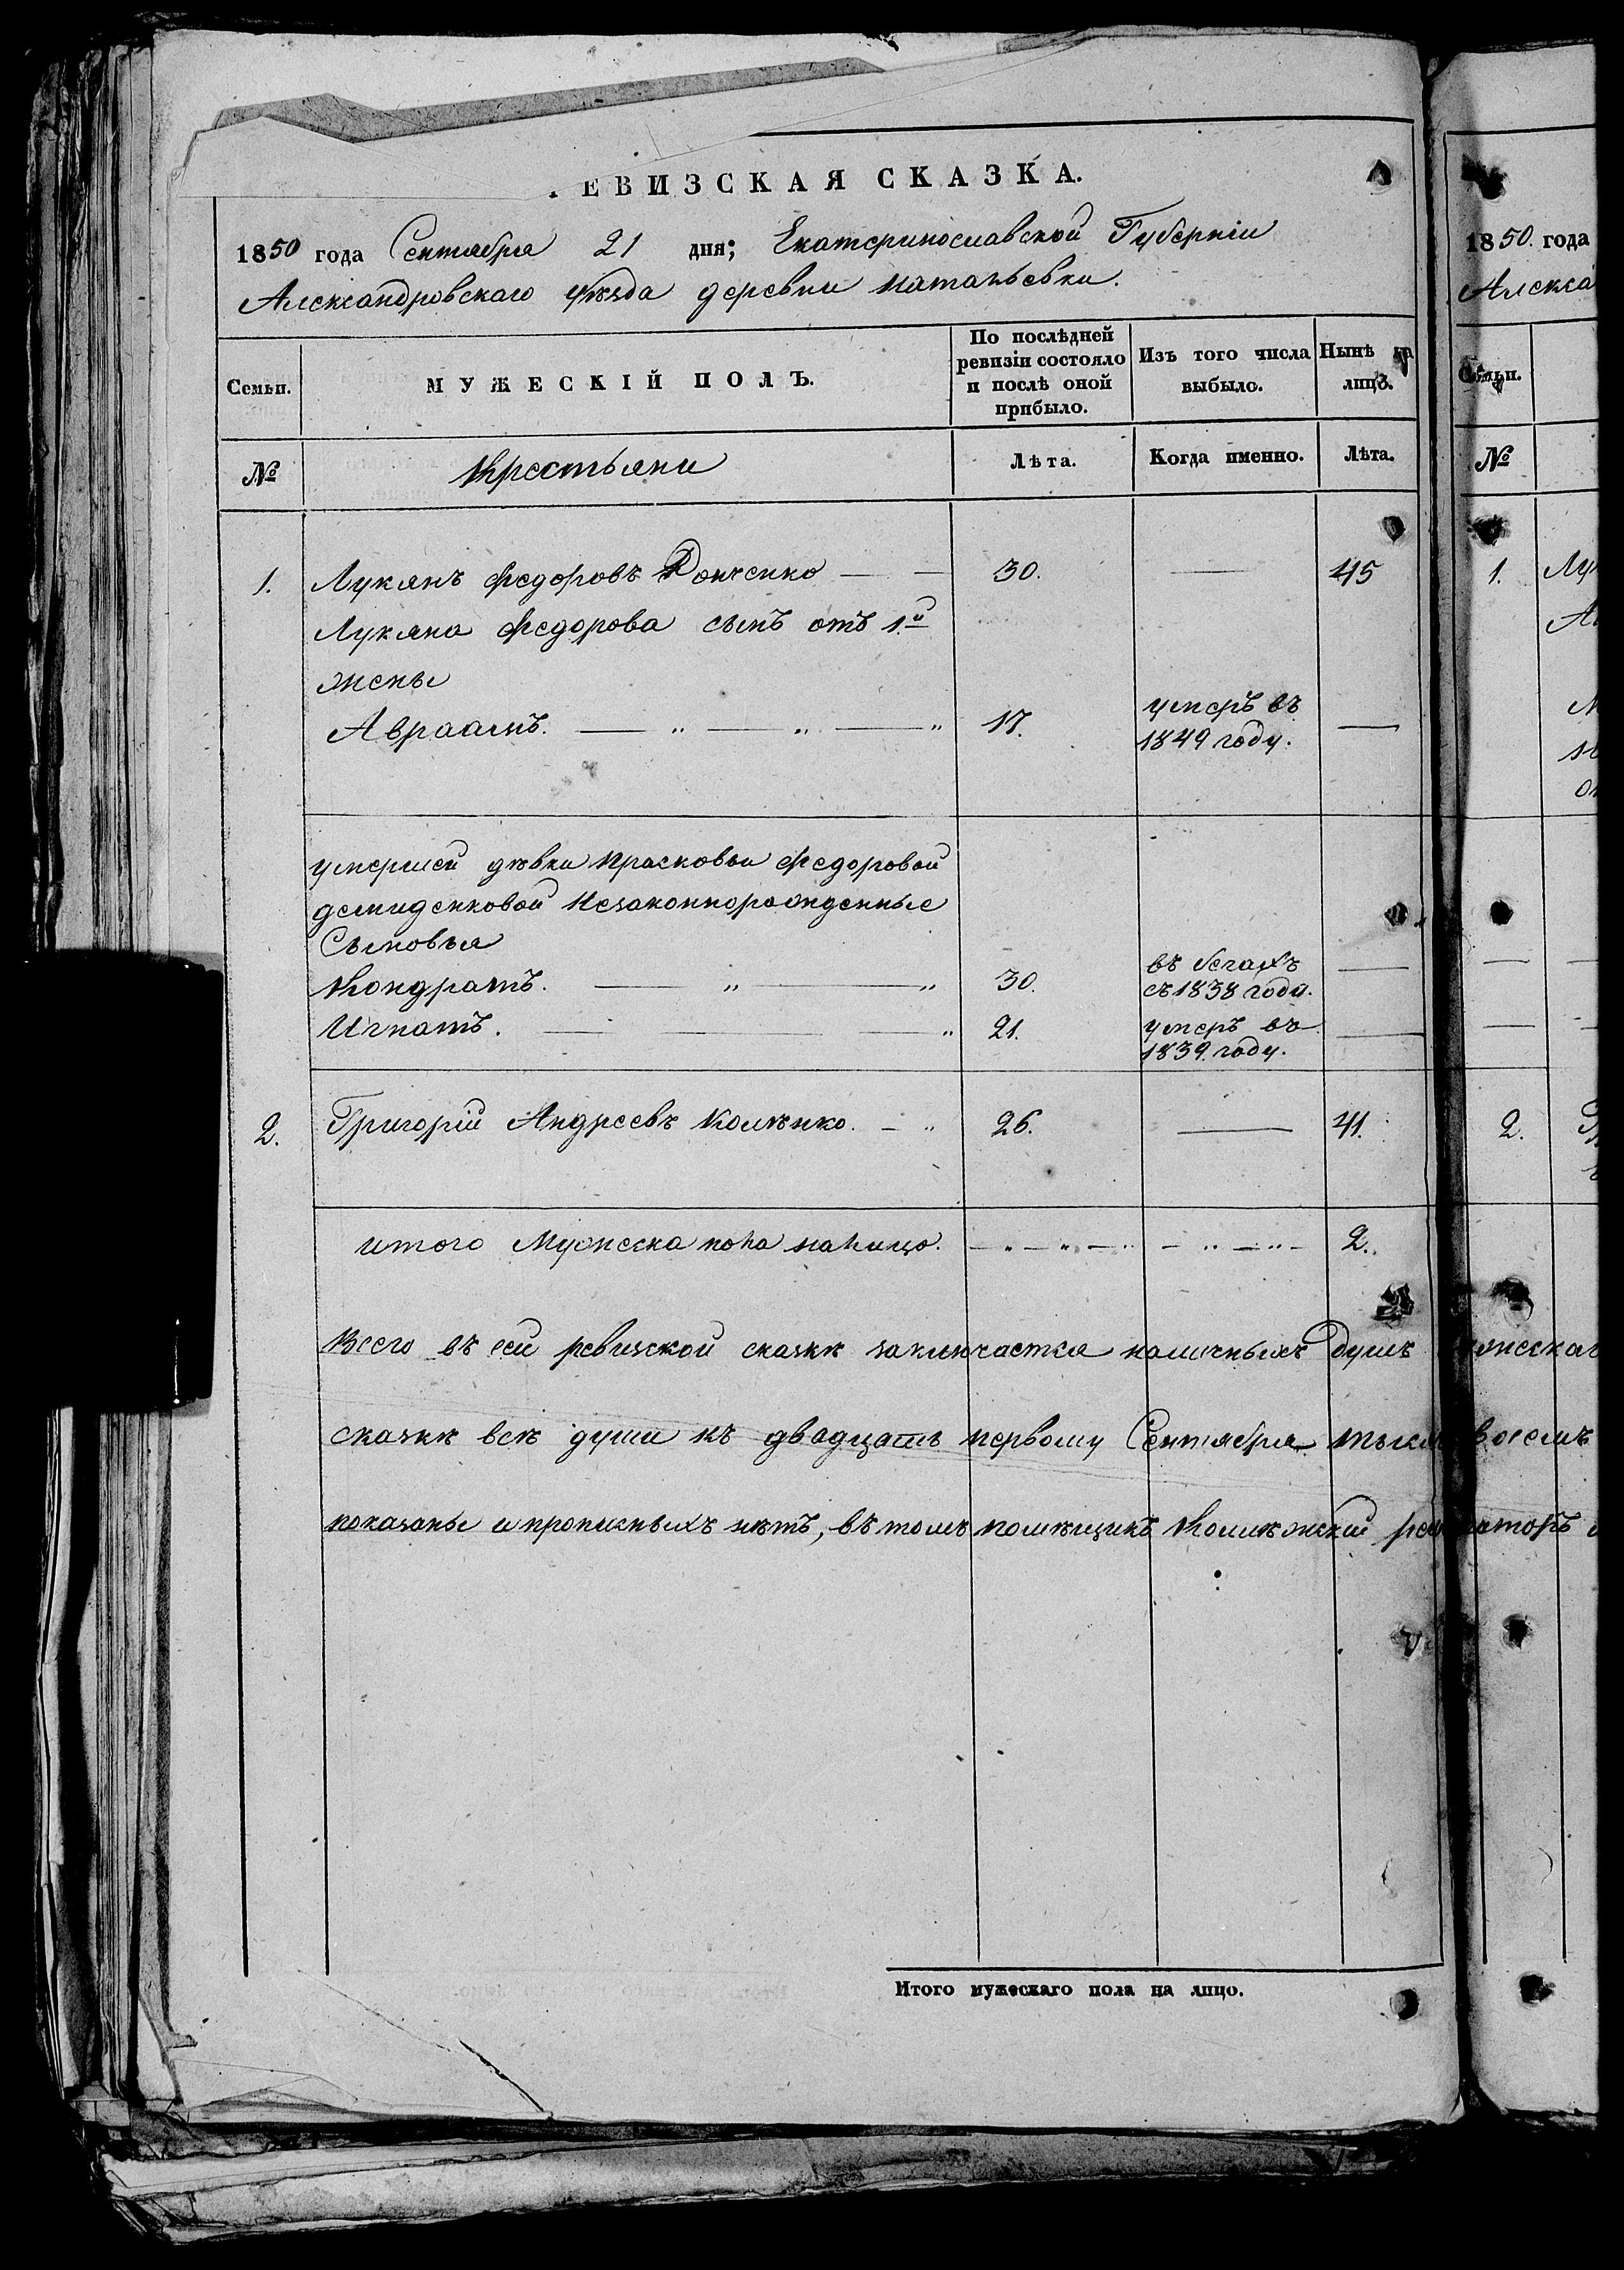 ЕВИЗСКАЯ СКАЗКА.
1850 года Сентября 21 дня; Екатеринославской Губерніи
Александровскаго уѣзда деревни Натальевки.
Семьи.
МУЖЕСКІЙ ПОЛЪ.
По послѣдней ревизіи состояло и послѣ оной прибыло.
Изъ того числа выбыло.
Нынѣ на лицо.
№
Крестьяни
Лѣта.
Когда именно.
Лѣта.
1. Лукянъ Федоровъ Донченко — — 30. — 45
Лукяна Федорова сынъ отъ 1й
жены
Авраамъ. — „ — „ — „ 17. умеръ въ 1849 году. —
умершей дѣвки Прасковьи Федоровой
демиденковой Незаконнорожденные
Сыновья
Кондратъ. — „ — „ 30. въ бегахъ съ 1838 года. —
Игнатъ. — — „ 21. умеръ въ 1839. году. —
2. Григорій Андреевъ — „ 26. — 41.
итого Мужеска пола налицо. — „ — „ — „ — „ — „ — 2.
Всего въ сей ревизской сказкѣ заключается наличныхъ Душъ
сказкѣ всѣ души къ двадцать первому Сентября
показаны и прописныхъ нѣтъ, въ томъ помѣщикъ
Итого мужескаго пола на лицо.
1850. года
Алекса
Семьи.
№
1. Лу
2.